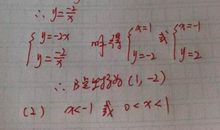 ∴ y=-2/x
{y=-2x, y=-2/x 可得 {x=1, y=-2 或 {x=-1, y=2
∴ B坐标为(1,-2)
(2) x<-1 或 0<x<1